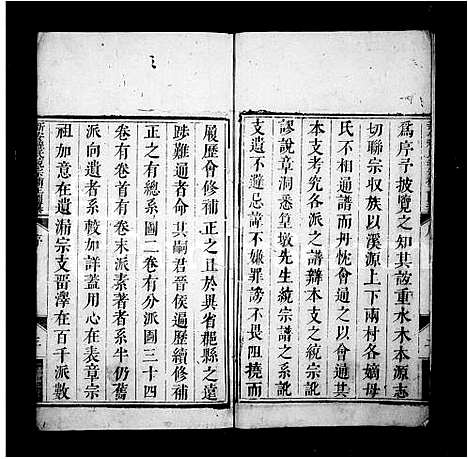 爲序予披覽之知其誼重水木本源志
切聯宗収族以溪源上下兩村各嫡母
氏不相通譜而丹忱會通之以會通其
本支考究各派之譜辯本支之統宗訛
謬說章洞悉篁墩先生統宗譜之系訛
支遺不避忌諱不嫌罪謗不畏阻撓而
履歷會修補正之且於與省郡縣之遠
踄難通者命其嗣君晉侯遍歷績修補
正之有總系圖二卷有分派圖三十四
卷有首卷有末派素著者系半仍舊
派向遺者系較加詳蓋用心在表章宗
祖加意在遺漏宗支畱澤在百千派數